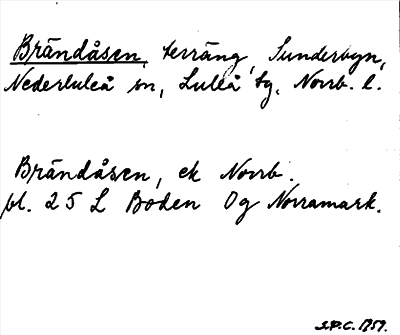 Brändåsen, terräng, Sunderbyn,
Nederluleå sn, Luleå tg, Norrb. l.
Brändåsen, ek Norrb.
bl. 25 L Boden Og Norramark.
S.P.C. 1959.